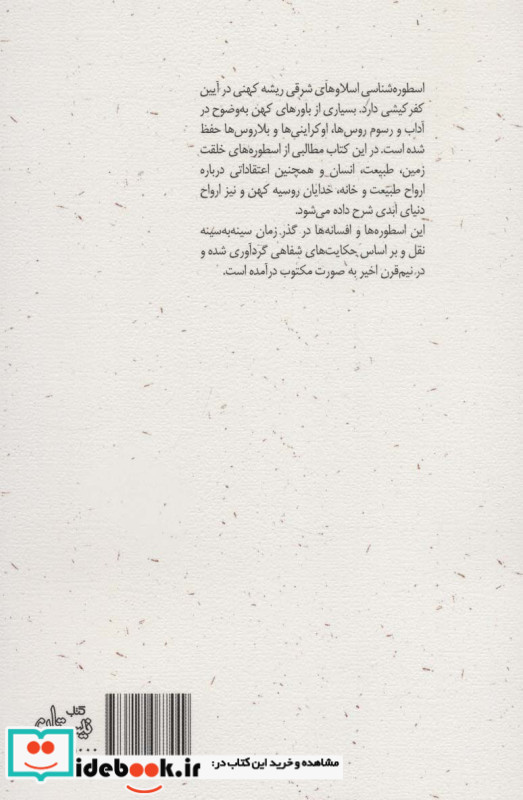 اسطوره‌شناسی اسلاوهای شرقی ریشه کهنی در آیین
کفرکیشی دارد. بسیاری از باورهای کهن به‌وضوح در
آداب و رسوم روس‌ها، اوکراینی‌ها و بلاروس‌ها حفظ
شده است. در این کتاب مطالبی از اسطوره‌های خلقت
زمین، طبیعت، انسان و همچنین اعتقاداتی درباره
ارواح طبیعت و خانه، خدایان روسیه کهن و نیز ارواح
دنیای ابدی شرح داده می‌شود.
این اسطوره‌ها و افسانه‌ها در گذر زمان سینه‌به‌سینه
نقل و بر اساس حکایت‌های شفاهی گردآوری شده و
در نیم‌قرن اخیر به صورت مکتوب درآمده است.
کتاب
مشاهده و خرید این کتاب در:
idebook.ir